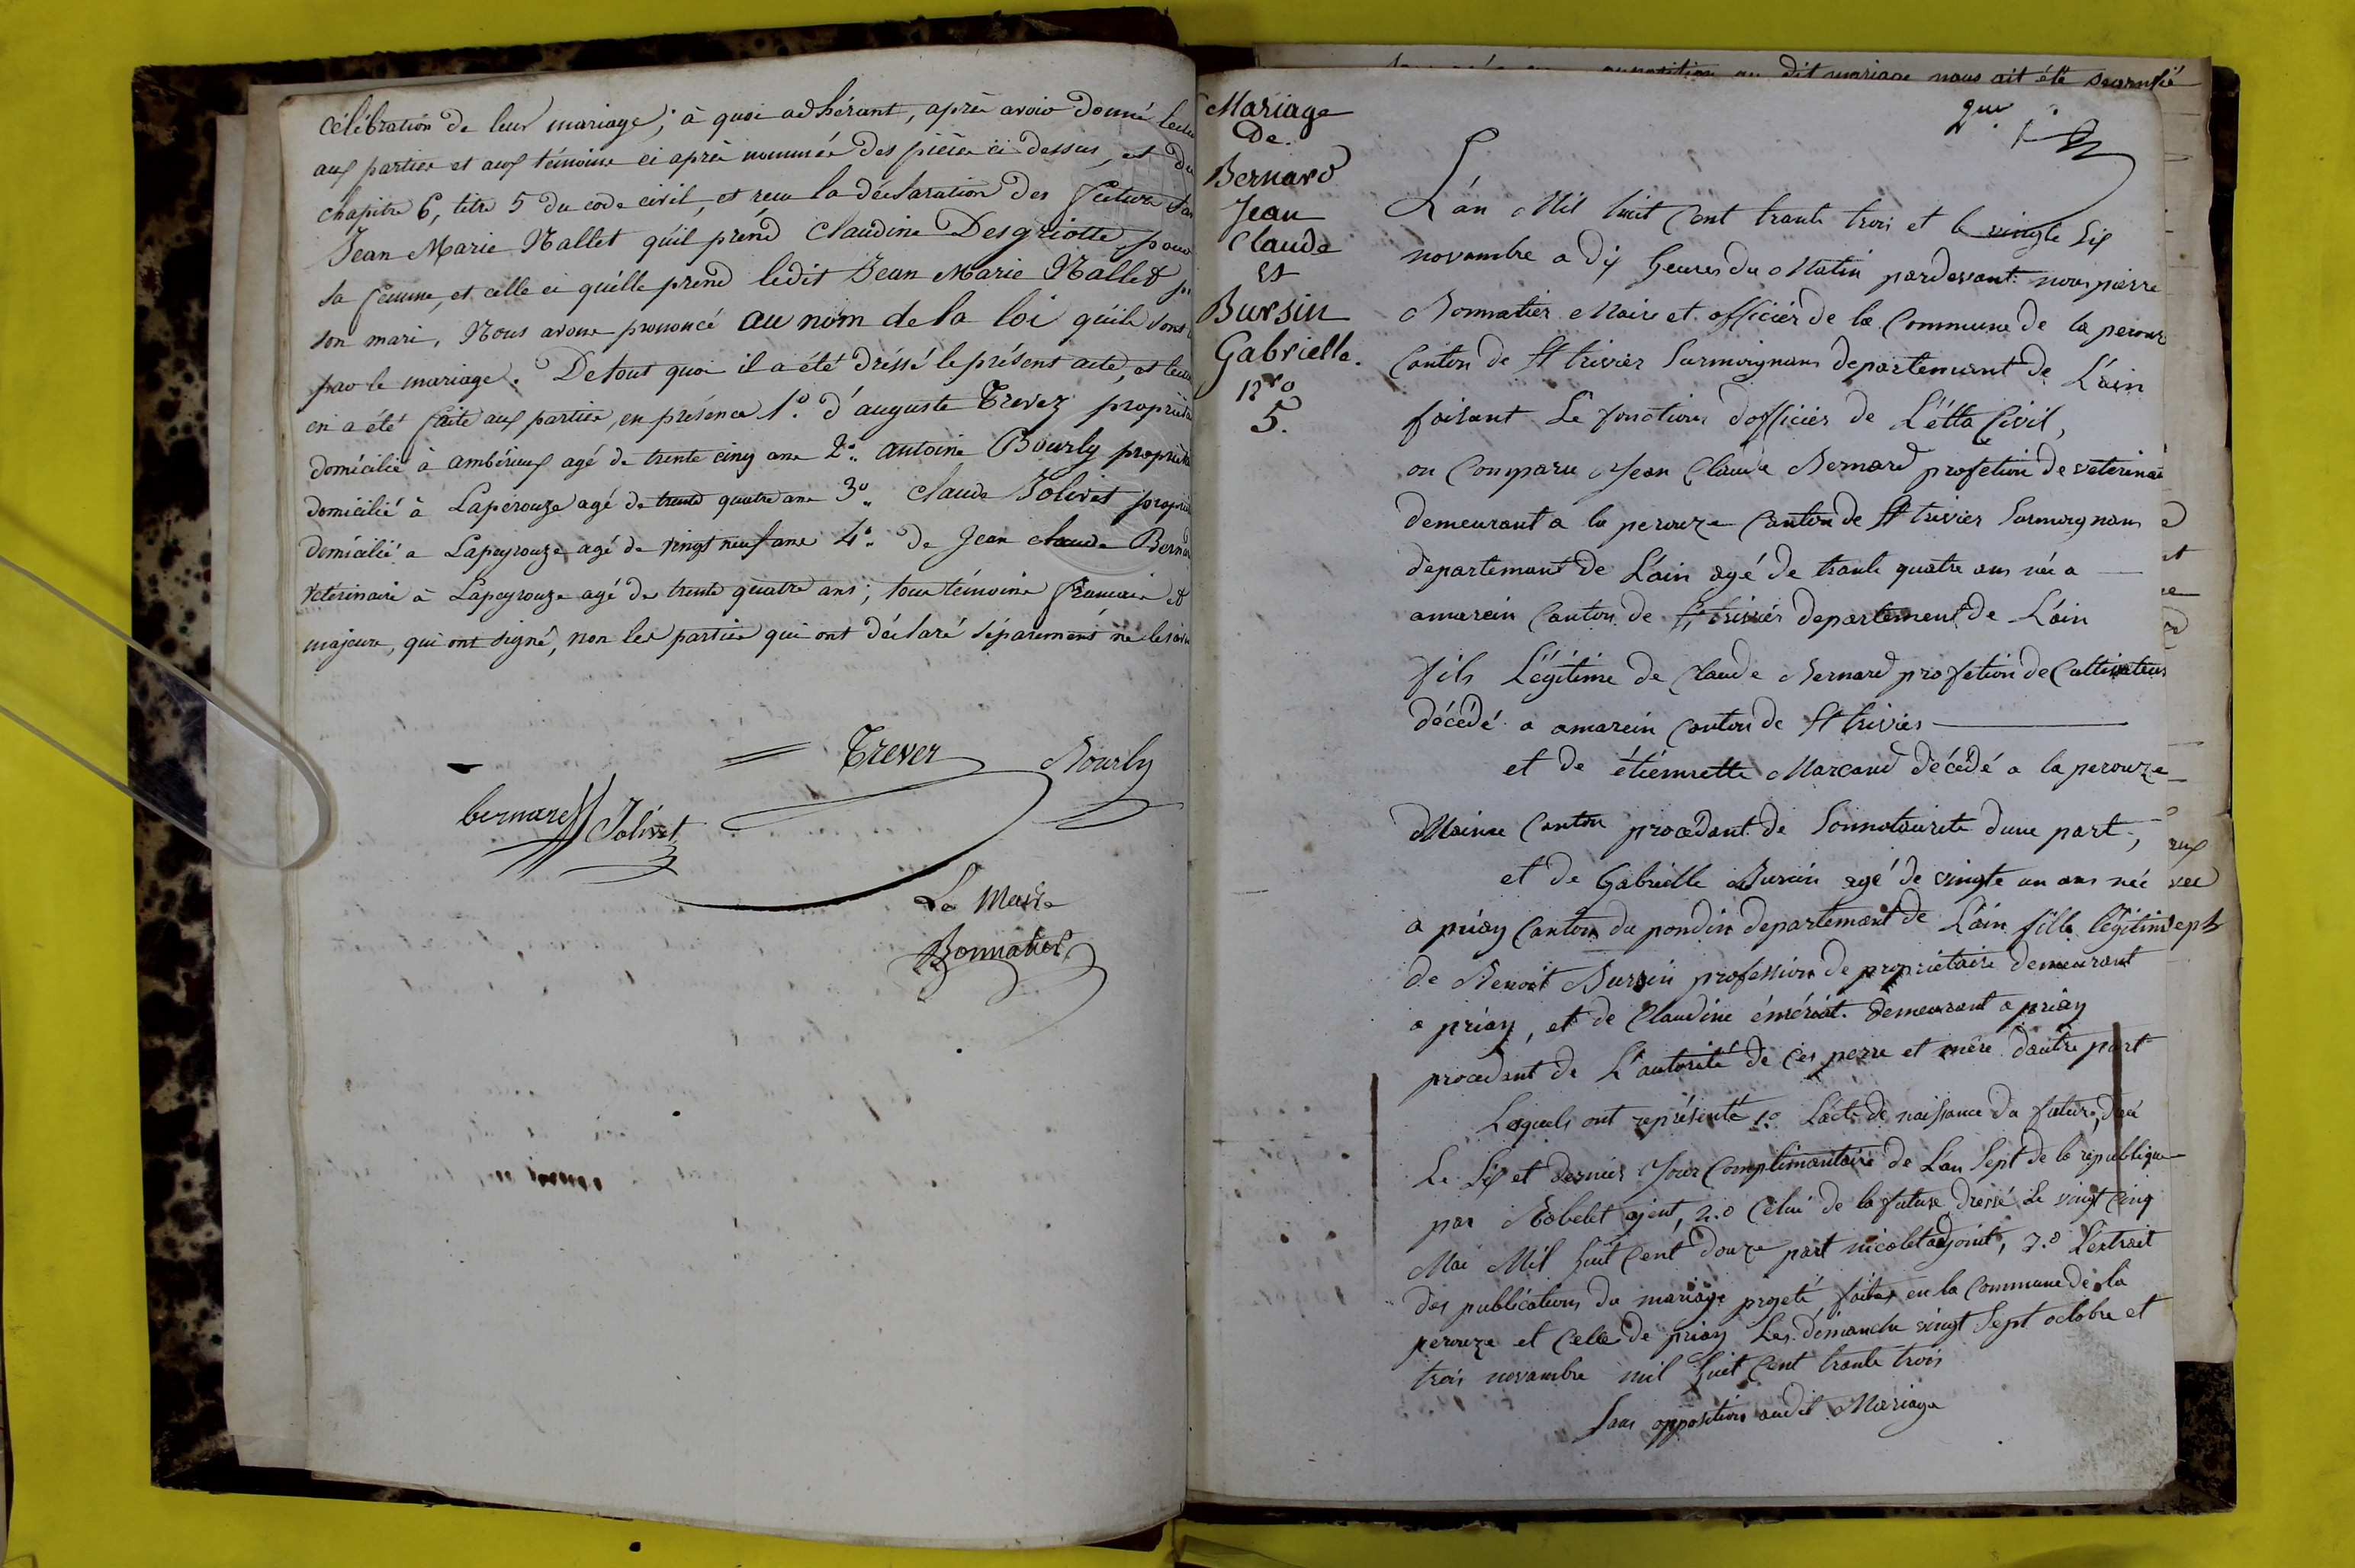 célébration de leur mariage; à quoi adhérant, après avoir donné lectu
aux parties et aux témoins ci après nommés des pièces ci dessus, et du
chapitre 6, titre 5 du code civil, et reçu la déclaration des futurs
Jean Marie Nallet qu'il prend Claudine Desgriotte pour
sa femme, et celle ci qu'elle prend ledit Jean Marie Nallet
son mari, Nous avons prononcé au nom de la loi qu'ils sont
par le mariage. De tout quoi il a été dréssé le présent acte, et lectu
en a été faite aux parties, en présence 1º. d'auguste Trevez propriéta
domicilié à ambérieux agé de trente cinq ans 2º. antoine Bourly propriéta
domicilié à Laperouze agé de trente quatre ans 3º. claude Jolivet proprié
domicilié a Lapeyrouze agé de vingt neuf ans 4º. de Jean claude Berna
vétérinaire à Lapeyrouze agé de trente quatre ans; tous témoins français et
majeurs, qui ont signé, non les parties qui ont déclaré séparément ne le savoi
Trever Bourly
bernard Jolivet
Le Maire
Bonnatier
opposition au dit mariage nous ait été signifié
Mariage
De.
Bernard
Jean
Claude
Et
Bursin
Gabrielle.
Nro
5.
L'án Mil huit Cent trante trois et le vingte Six
novambre a dix heures du Matin pardevant nous pierre
Bonnatier Maire et officiér de la Commune de la perouze
Canton de St trivier Surmoignans departement de L'ain
faisant Le fonctions dofficiér de L'étta Civil,
on Comparu Jean Claude Bernard profetion de veterinai
demeurant a la perouze Canton de St trivier Surmoignans
departemant de L'ain agé de trante quatre ans née a
amarein Canton de St trivier departement de L'ain
fils Légitime de Claude Bernard profetion de Cultivateur
décédé a amarein Canton de St trivier
et de étiennette Marcand décédé a la perouze
Maime Canton procedant de Sonnotourete dune part;
et de Gabrielle Bursin agé de vingte un ans née
a priay Canton du pondin departemant de L'ain fille légitim
de Benoit Bursin profession de propriétaire demeurant
a priay, et de Claudine émériat demeurant a priay
procedant de L'autorité de Ces perre et mére dautre part
Lesquels ont représenté 1.º Lácte de naissance du future,
Le Six et dernier Jour Complimantaire de L'an Sept de la république
par Nobelet ajent, 2.º Celui de la future dressé Le vingt Cinq
Mai Mil huit Cent douze part nicolet adjoint, 3.º L'extrait
des publications du mariage projeté faites en la Commune de la
perouze et Celle de priay Les dimanche vingt Sept octobre et
trois novambre mil huit Cent trante trois
Sans opposition audit Mariage